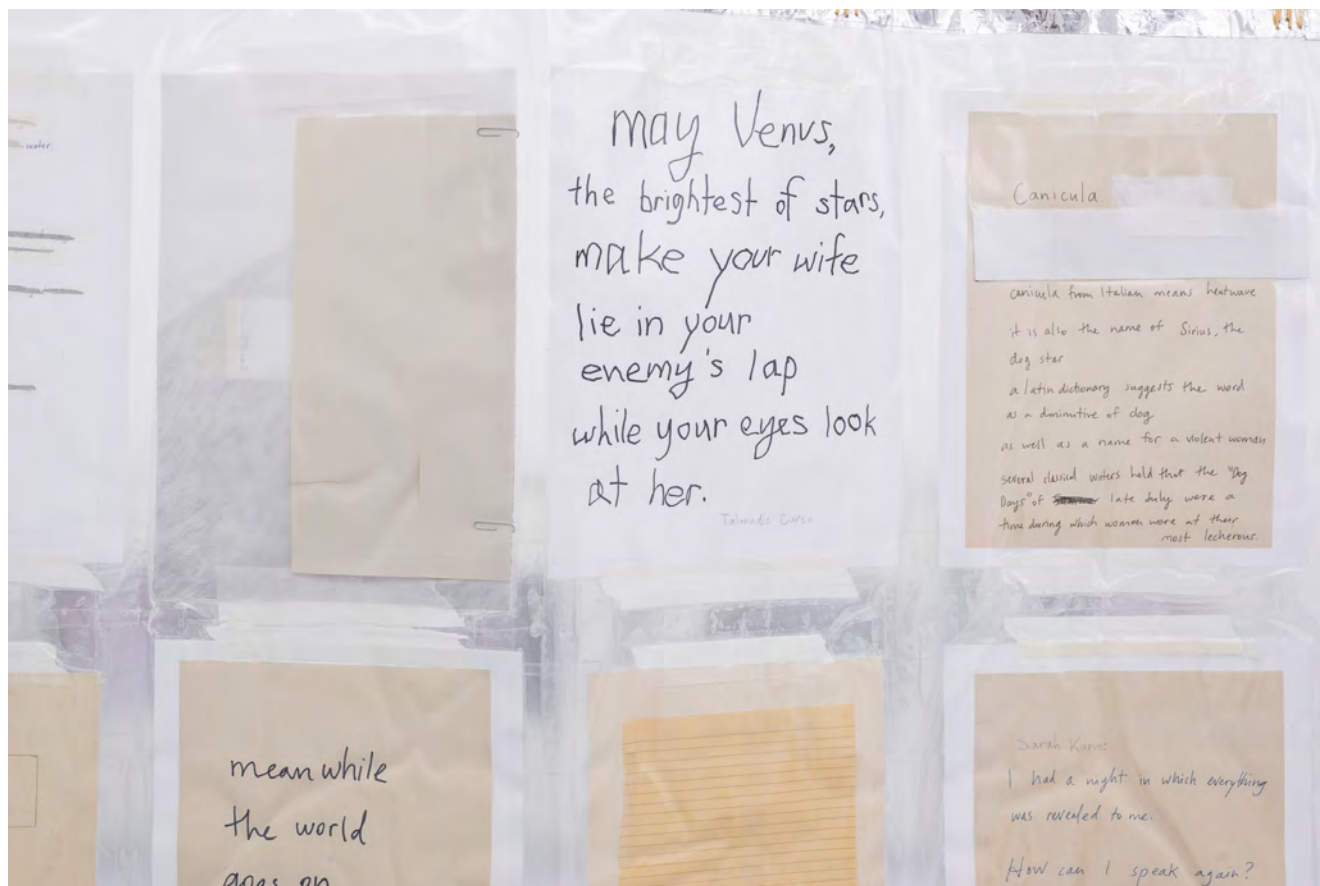 water.
may Venus,
the brightest of stars,
make your wife
lie in your
enemy's lap
while your eyes look
at her.
Talmudic Curse
Canicula
canicula from Italian means heatwave
it is also the name of Sirius, the
dog star
a latin dictionary suggests the word
as a diminutive of dog
as well as a name for a violent woman
several classical writers hold that the "Dog
Days" of late July were a
time during which women were at their
most lecherous.
meanwhile
the world
goes on
Sarah Kane:
I had a night in which everything
was revealed to me.
How can I speak again?